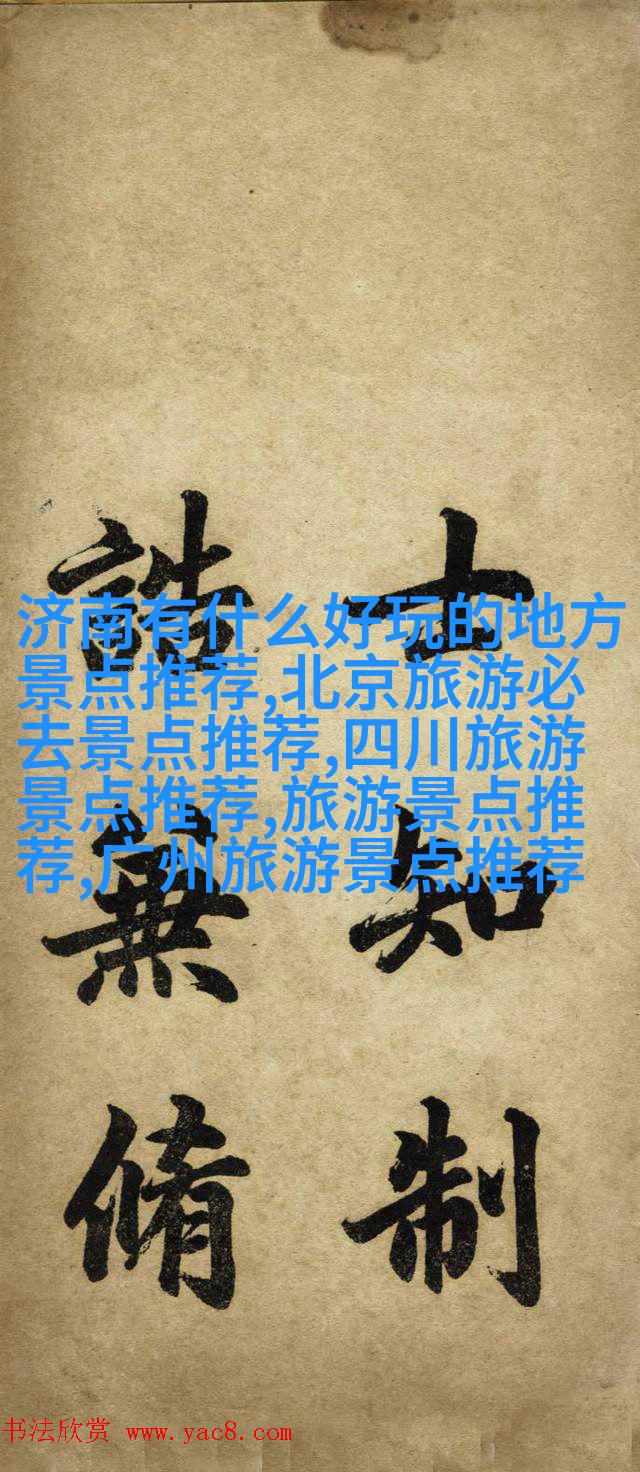 士知制
誥兼脩
济南有什么好玩的地方
景点推荐,北京旅游必
去景点推荐,四川旅游
景点推荐,旅游景点推
荐,广州旅游景点推荐
书法欣赏 www.yac8.com